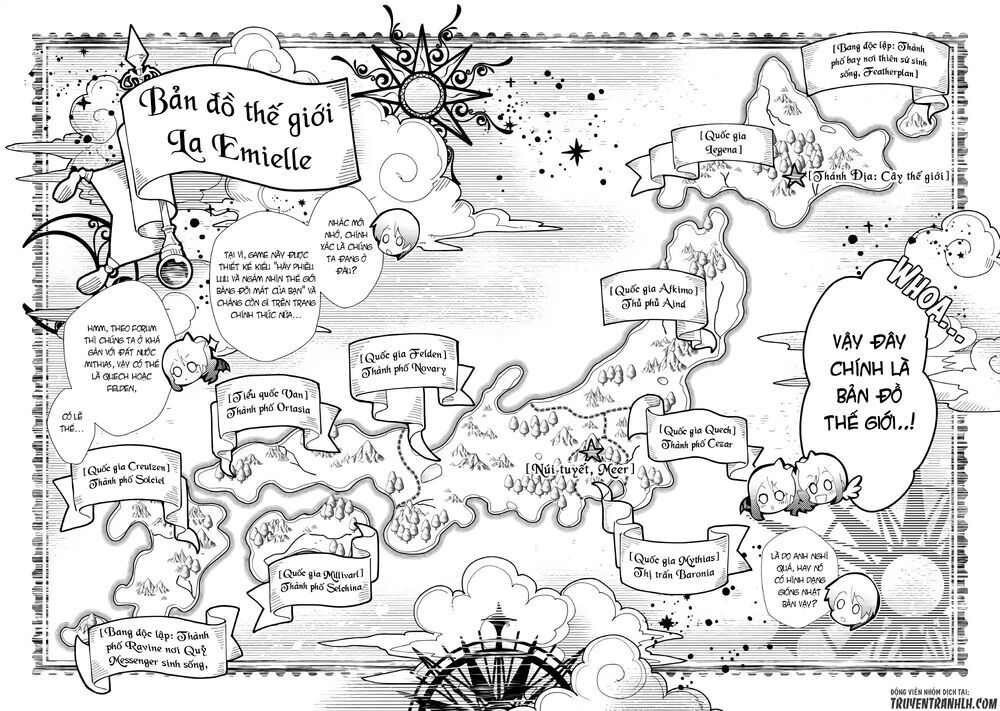 Bản đồ thế giới
La Emielle
[Bang độc lập: Thành
phố bay nơi thiên sứ sinh
sống, Featherplan]
[Quốc gia
Legena]
[Thánh Địa: Cây thế giới]
NHẮC MỚI
NHỚ, CHÍNH
XÁC LÀ CHÚNG
TA ĐANG Ở
ĐÂU?
TẠI VÌ, GAME NÀY ĐƯỢC
THIẾT KẾ KIỂU "HÃY PHIÊU
LƯU VÀ NGẮM NHÌN THẾ GIỚI
BẰNG ĐÔI MẮT CỦA BẠN" VÀ
CHẲNG CÒN GÌ TRÊN TRANG
CHÍNH THỨC NỮA...
HMM, THEO FORUM
THÌ CHÚNG TA Ở KHÁ
GẦN VỚI ĐẤT NƯỚC
MITHIAS, VẬY CÓ THỂ
LÀ QUECH HOẶC
FELDEN,
CÓ LẼ
THẾ...
WHOA...
VẬY ĐÂY
CHÍNH LÀ
BẢN ĐỒ
THẾ GIỚI..!
[Quốc gia Afkimo]
Thủ phủ Aind
[Quốc gia Felden]
Thành phố Novary
[Tiểu quốc Van]
Thành phố Ortasia
[Quốc gia Quech]
Thành phố Cezar
[Quốc gia Creutzen]
Thành phố Solciel
[Núi tuyết, Meer]
[Quốc gia Mythias]
Thị trấn Baronia
[Quốc gia Millivarl]
Thành phố Selchina
[Bang độc lập: Thành
phố Ravine nơi Quỷ
Messenger sinh sống,
LÀ DO ANH NGHĨ
QUÁ, HAY NÓ
CÓ HÌNH DẠNG
GIỐNG NHẬT
BẢN VẬY?
ĐỘNG VIÊN NHÓM DỊCH TẠI:
TRUYENTRANHLH.COM